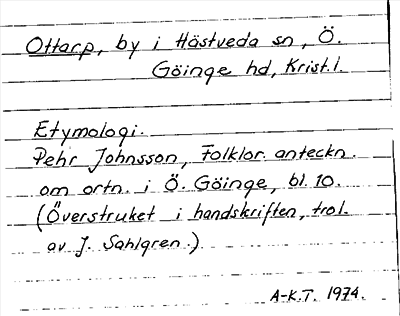 Ottarp, by i Hästveda sn, Ö.
Göinge hd, Krist.l.
Etymologi.
Pehr Johnsson, Folklor. anteckn.
om ortn. i Ö. Göinge, bl. 10.
(Överstruket i handskriften, trol.
av J. Sahlgren.)
A-K.T. 1974.